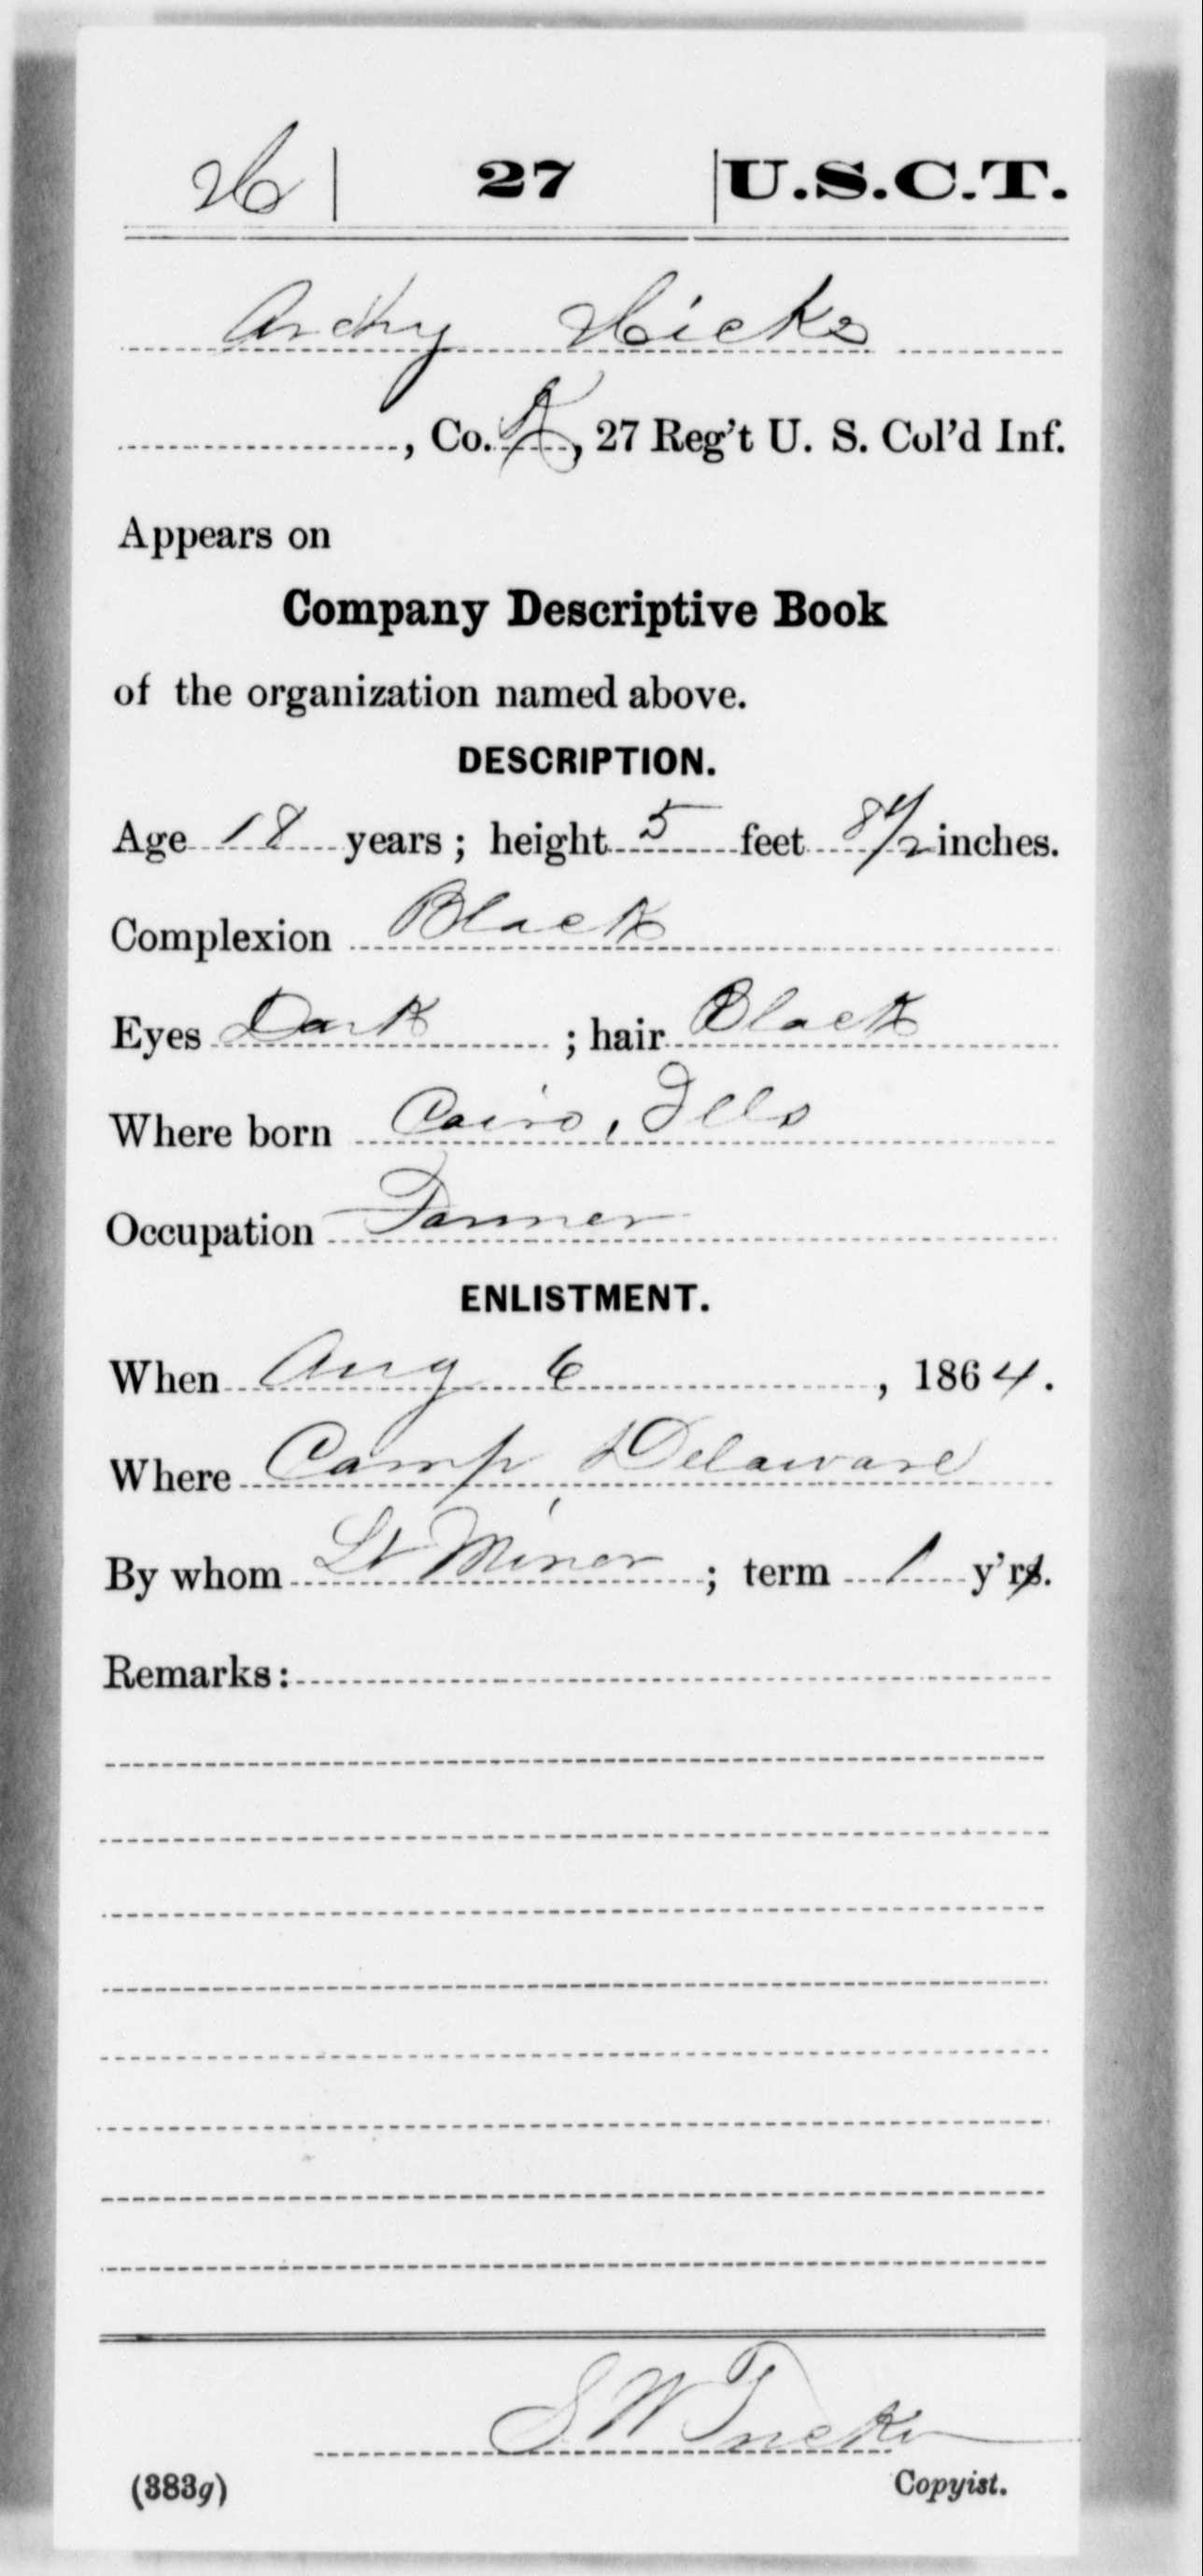 H | 27 | U.S.C.T.
Archy Hicks
, Co. A, 27 Reg't U. S. Col'd Inf.
Appears on
Company Descriptive Book
of the organization named above.
DESCRIPTION.
Age 18 years; height 5 feet 8 1/2 inches.
Complexion Black
Eyes Dark; hair Black
Where born Cairo, Ills
Occupation Farmer
ENLISTMENT.
When Aug 6, 1864.
Where Camp Delaware
By whom Lt Miner; term 1 y'rs.
Remarks:
S W Tucker
(383g) Copyist.